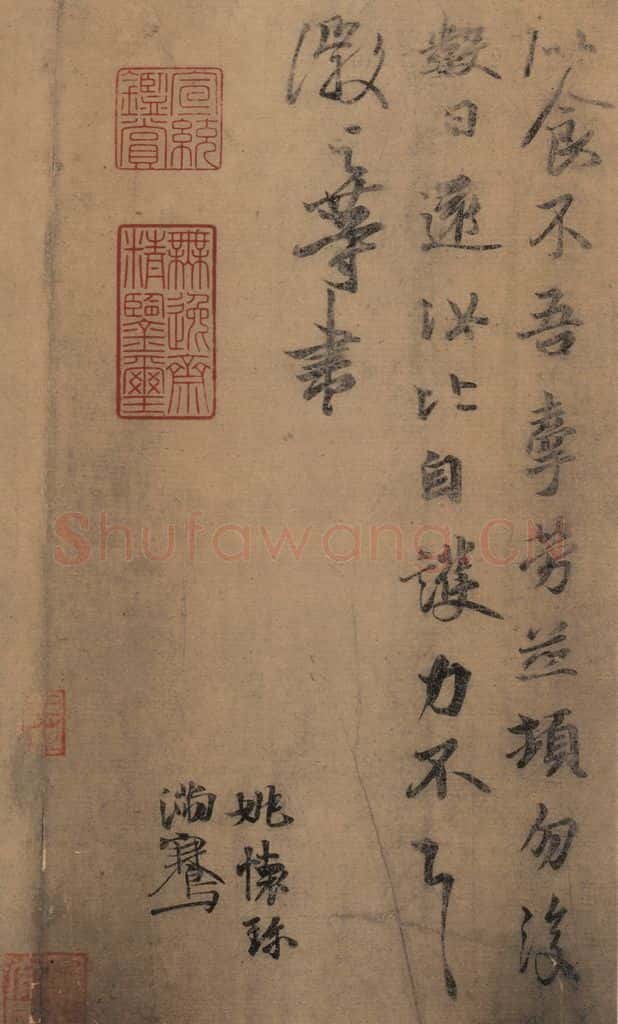 似食不吾牽勞並頓勿復
數日還汝比自護力不具
徽之等書
宣統
鑑賞
無逸齋
精鑒璽
姚懷珎
滿騫
Shufawang.CN